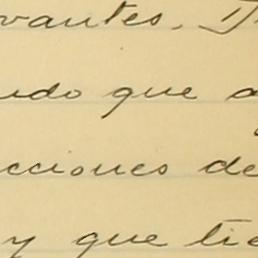 vantes. D
ndo que a
cciones de
y que tie